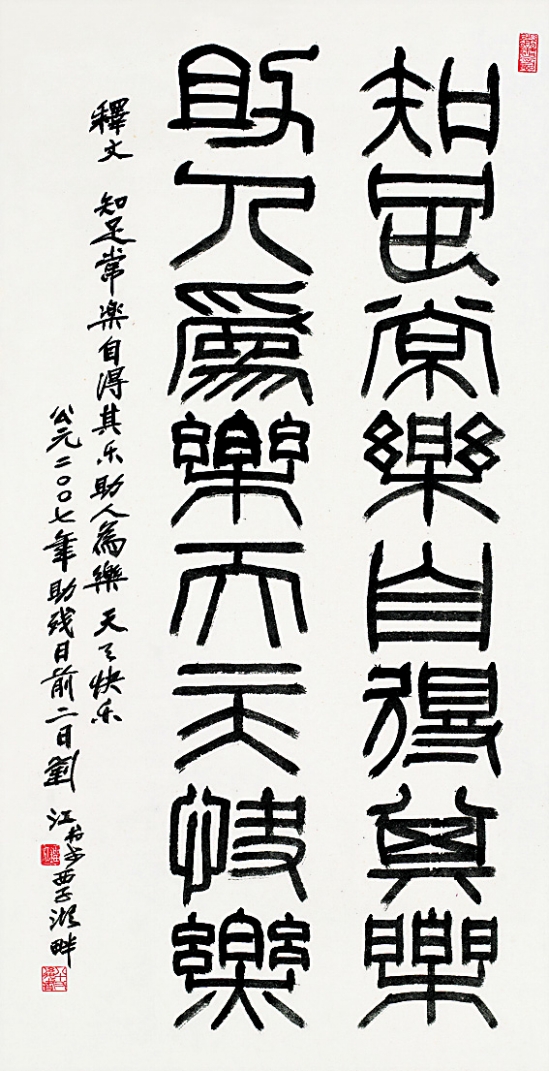 知足常樂自得其樂
助人爲樂天天快樂
釋文 知足常楽自得其乐助人為樂 天々快乐
公元二〇〇七年助残日前二日劉江於西子湖畔